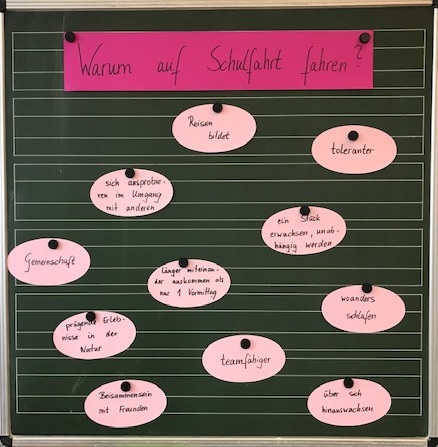 Warum auf Schulfahrt fahren?
Reisen
bildet
toleranter
sich ausprobie-
ren im Umgang
mit anderen
ein Stück
erwachsen, unab-
hängig werden
Gemeinschaft
länger miteinan-
der auskommen als
nur 1 Vormittag
woanders
schlafen
prägende Erleb-
nisse in der
Natur
teamfähiger
Beisammensein
mit Freunden
über sich
hinauswachsen